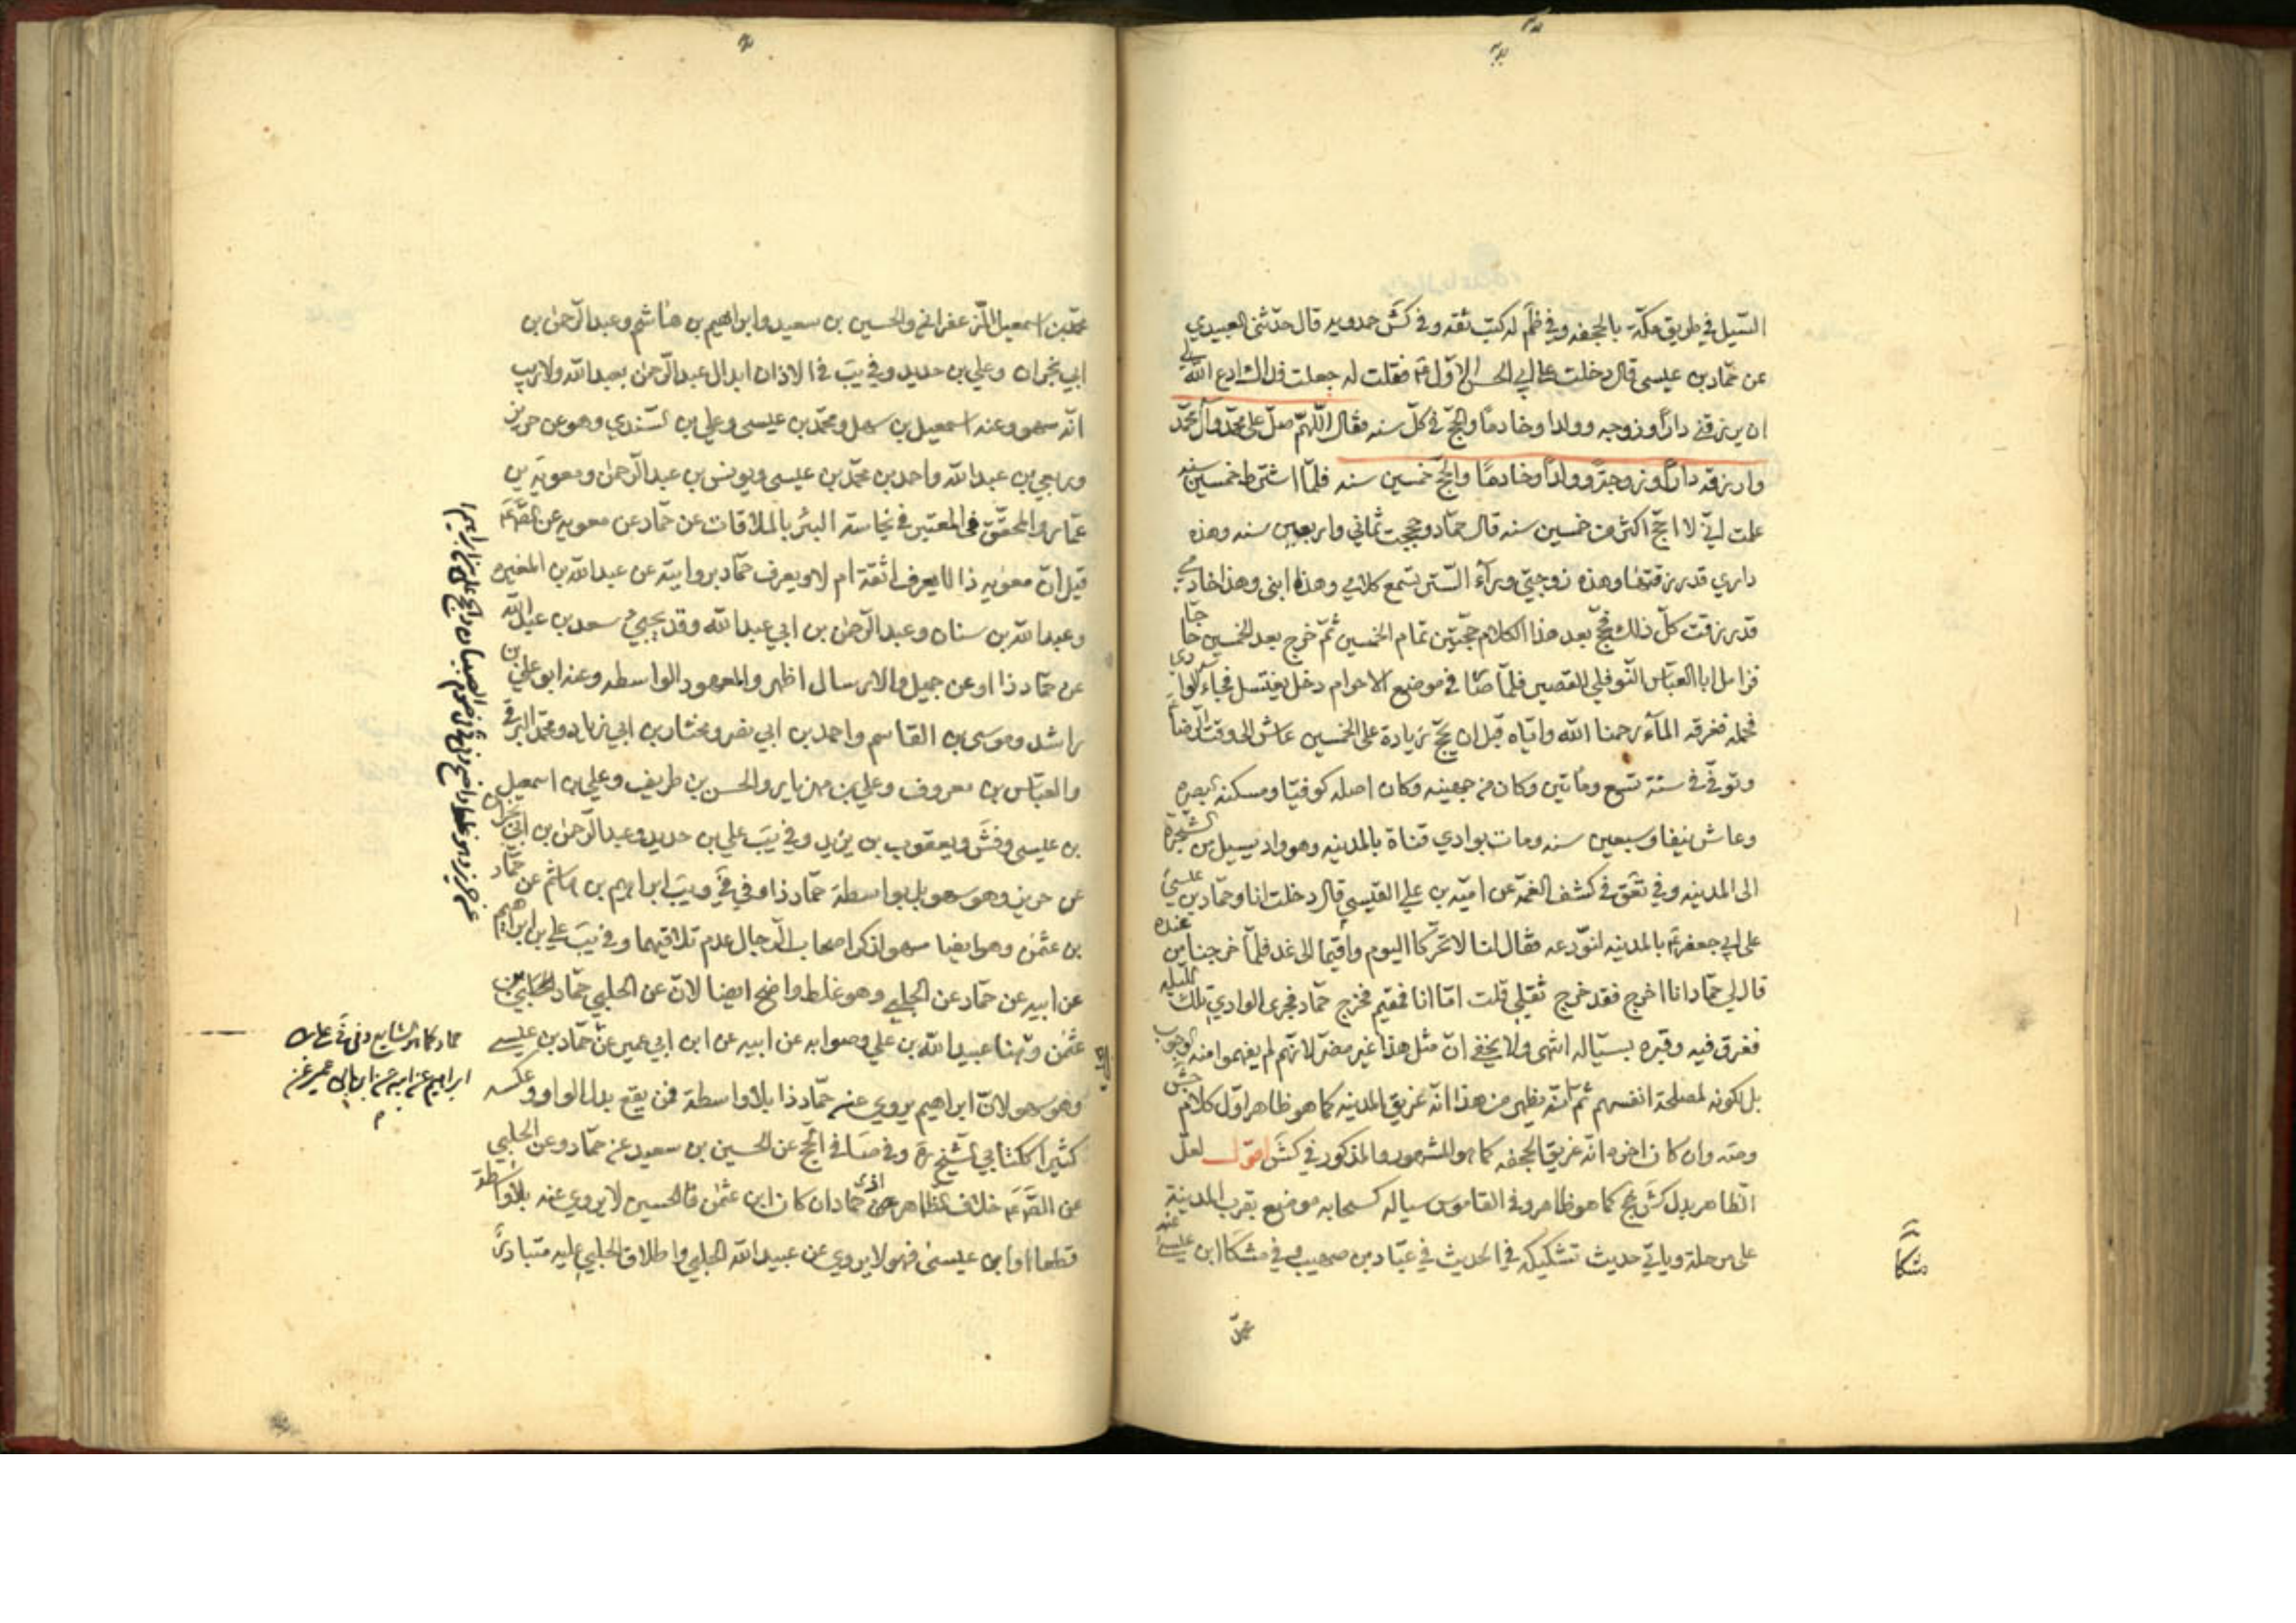 السّيل في طريق مكّة بالجحفه وفي ظم له كتب ثقه وفي كش حمدويه قال حدّثني العبيدي
عن حمّاد بن عيسى قال دخلت على ابي الحسن الاوّل ع فقلت له جعلت فداك ادع الله لي
ان يرزقني دارًا وزوجه وولدا وخادمًا والحجّ في كلّ سنه فقال اللّهمّ صلّ على محمّد وآل محمّد
وارزقه دارًا وزوجةً وولدًا وخادمًا والحجّ خمسين سنه فلمّا اشترط خمسين سنه
علمت انّي لا احجّ اكثر من خمسين سنه قال حمّاد وحججت ثماني واربعين سنه وهذه
داري قد رزقتها وهذه زوجتي وراء السّتر تسمع كلامي وهذا ابني وهذا خادمي
قد رزقت كلّ ذلك فحجّ بعد هذا الكلام حجّتين تمام الخمسين ثمّ خرج بعد الخمسين حاجّا
فزامل ابا العبّاس النّوفلي القصير فلمّا صار في موضع الاحرام دخل يغتسل فجاء الوادي
فحمله فغرقه المآء رحمنا الله وايّاه قبل ان يحجّ زيادة على الخمسين عاش الى وقت الرّضا ع
وتوفّي في سنة تسع ومأتين وكان من جهينه وكان اصله كوفيّا ومسكنه البصره
وعاش نيفا وسبعين سنه ومات بوادي قناة بالمدينه وهو واد يسيل من الشّجرة
الى المدينه وفي تعق في كشف الغمّه عن اميّه بن علي القيسي قال دخلت انا وحمّاد بن عيسى
على ابي جعفر ع بالمدينه لنودّعه فقال لنا لا تحرّكا اليوم واقيما الى غد فلمّا خرجنا من عنده
قال لي حمّاد انا اخرج فقد خرج ثقلي قلت امّا انا فمقيم فخرج حمّاد فجرى الوادي تلك الليله
فغرق فيه وقبره بسيّاله انتهى ولا يخفى انّ مثل هذا غير مضرّ لانّهم لم يفهموا منه الوجوب
بل كونه لمصلحة انفسهم ثمّ انّه يظهر من هذا انّه غريق المدينه كما هو ظاهر اوّل كلام جش
ومته وان كان اخره انّه غريق الجحفه كما هو المشهور والمذكور في كش اقول لعلّ
الظاهر بدل كش جخ كما هو ظاهر وفي القاموس سياله كسحابه موضع بقرب المدينة
على مرحلة وياتي حديث تشكيكه في الحديث في عبّاد بن صهيب في مشكا ابن عيسى عنه
مشكا
محمّد بن اسمعيل الزّعفراني والحسين بن سعيد وابراهيم بن هاشم وعبد الرّحمن بن
ابي نجران وعلي بن حديد وفي يب في الاذان ابدال عبد الرّحمن بعبد الله ولا ريب
انّه سهو وعنه اسمعيل بن سهل ومحمّد بن عيسى وعلي بن السّندي وهو عن حريز
وربعي بن عبد الله واحمد بن محمّد بن عيسى ويونس بن عبد الرّحمن ومعويه بن
عمّار والمحقّق في المعتبر في نجاسة البئر بالملاقات عن حمّاد عن معويه عن الصّ ع
قيل انّ معويه ذا لا يعرف اثقة ام لا ويعرف حمّاد بروايته عن عبد الله بن المغيره
وعبد الله بن سنان وعبد الرّحمن بن ابي عبد الله وقد يجيئ سعد بن عبد الله
عن حمّاد ذا او عن جميل والارسال اظهر والمعهود الواسطه وعنه ابو علي بن
راشد وموسى بن القاسم واحمد بن ابي نصر ومختار بن ابي زياد ومحمّد البرقي
والعبّاس بن معروف وعلي بن مهزيار والحسن بن ظريف وعلي بن اسمعيل
بن عيسى وفش ويعقوب بن يزيد وفي يب علي بن حديد وعبد الرّحمن بن ابي نجران
عن حريز وهو سهو بل بواسطة حمّاد ذا وفي في ويب ابراهيم بن هاشم عن حمّاد
بن عثمن وهو ايضا سهو اذ ذكر اصحاب الرّجال عدم تلاقيهما وفي يب علي بن ابراهيم
عن ابيه عن حمّاد عن الحلبي وهو غلط واضح ايضا لانّ عن الحلبي حمّاد بن
عثمن وهنا عبيد الله بن علي وصوابه عن ابيه عن ابن ابي عمير عن حمّاد بن عيسى
وهو سهو لانّ ابراهيم يروي عنه حمّاد ذا بلا واسطة فمن يقع بدل الواو وعكسه
كثيرا ككتابي الشّيخ ره وفي صا في الحجّ عن الحسين بن سعيد عن حمّاد وعن الحلبي
عن الصّ ع خلاف الظاهر اذ حمّاد ان كان ابن عثمن فالحسين لا يروي عنه بلا واسطة
قطعا او ابن عيسى فهو لا يروي عن عبيد الله الحلبي واطلاق الحلبي عليه متبادر
ابراهيم عن ابيه عن ابن ابي عمير عن